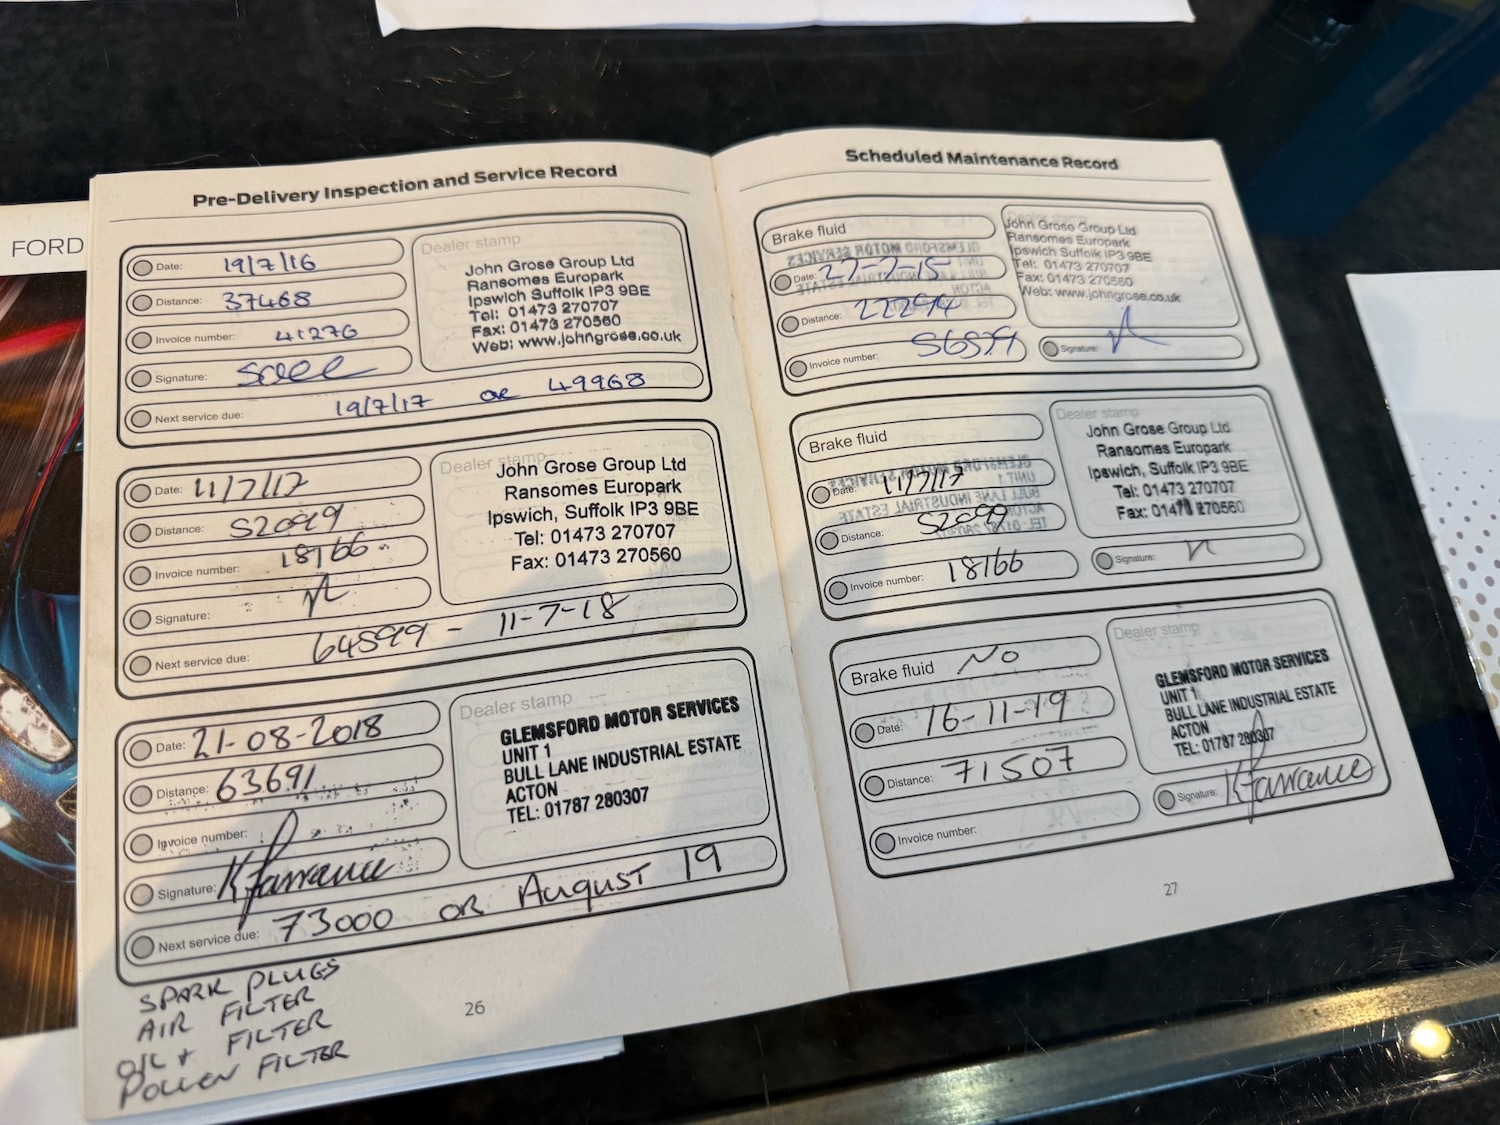 FORD
Pre-Delivery Inspection and Service Record
Date: 19/7/16
Distance: 37468
Invoice number: 41276
Signature:
Next service due: 19/7/17 or 49968
Dealer stamp
John Grose Group Ltd
Ransomes Europark
Ipswich Suffolk IP3 9BE
Tel: 01473 270707
Fax: 01473 270560
Web: www.johngrose.co.uk
Date: 11/7/17
Distance: 52099
Invoice number: 18166
Signature:
Next service due: 64599 - 11-7-18
Dealer stamp
John Grose Group Ltd
Ransomes Europark
Ipswich, Suffolk IP3 9BE
Tel: 01473 270707
Fax: 01473 270560
Date: 21-08-2018
Distance: 63691
Invoice number:
Signature: K Farrance
Next service due: 73000 OR AUGUST 19
Dealer stamp
GLEMSFORD MOTOR SERVICES
UNIT 1
BULL LANE INDUSTRIAL ESTATE
ACTON
TEL: 01787 280307
SPARK PLUGS
AIR FILTER
OIL + FILTER
POLLEN FILTER
26
Scheduled Maintenance Record
Brake fluid
Date:
Distance: 22294
Invoice number: 56579
John Grose Group Ltd
Ransomes Europark
Ipswich Suffolk IP3 9BE
Tel: 01473 270707
Fax: 01473 270560
Web: www.johngrose.co.uk
Signature:
Brake fluid
Date: 11/7/17
Distance: 52099
Invoice number: 18166
Dealer stamp
John Grose Group Ltd
Ransomes Europark
Ipswich, Suffolk IP3 9BE
Tel: 01473 270707
Fax: 01473 270560
Signature:
Brake fluid NO
Date: 16-11-19
Distance: 71507
Invoice number:
Dealer stamp
GLEMSFORD MOTOR SERVICES
UNIT 1
BULL LANE INDUSTRIAL ESTATE
ACTON
TEL: 01787 280307
Signature: K Farrance
27